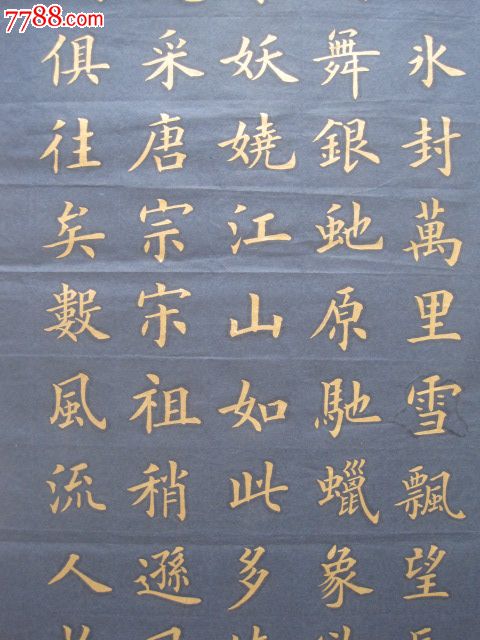 7788.com
氷封萬里雪飄望
舞銀虵原馳蠟象
妖嬈江山如此多
采唐宗宋祖稍遜
俱往矣數風流人